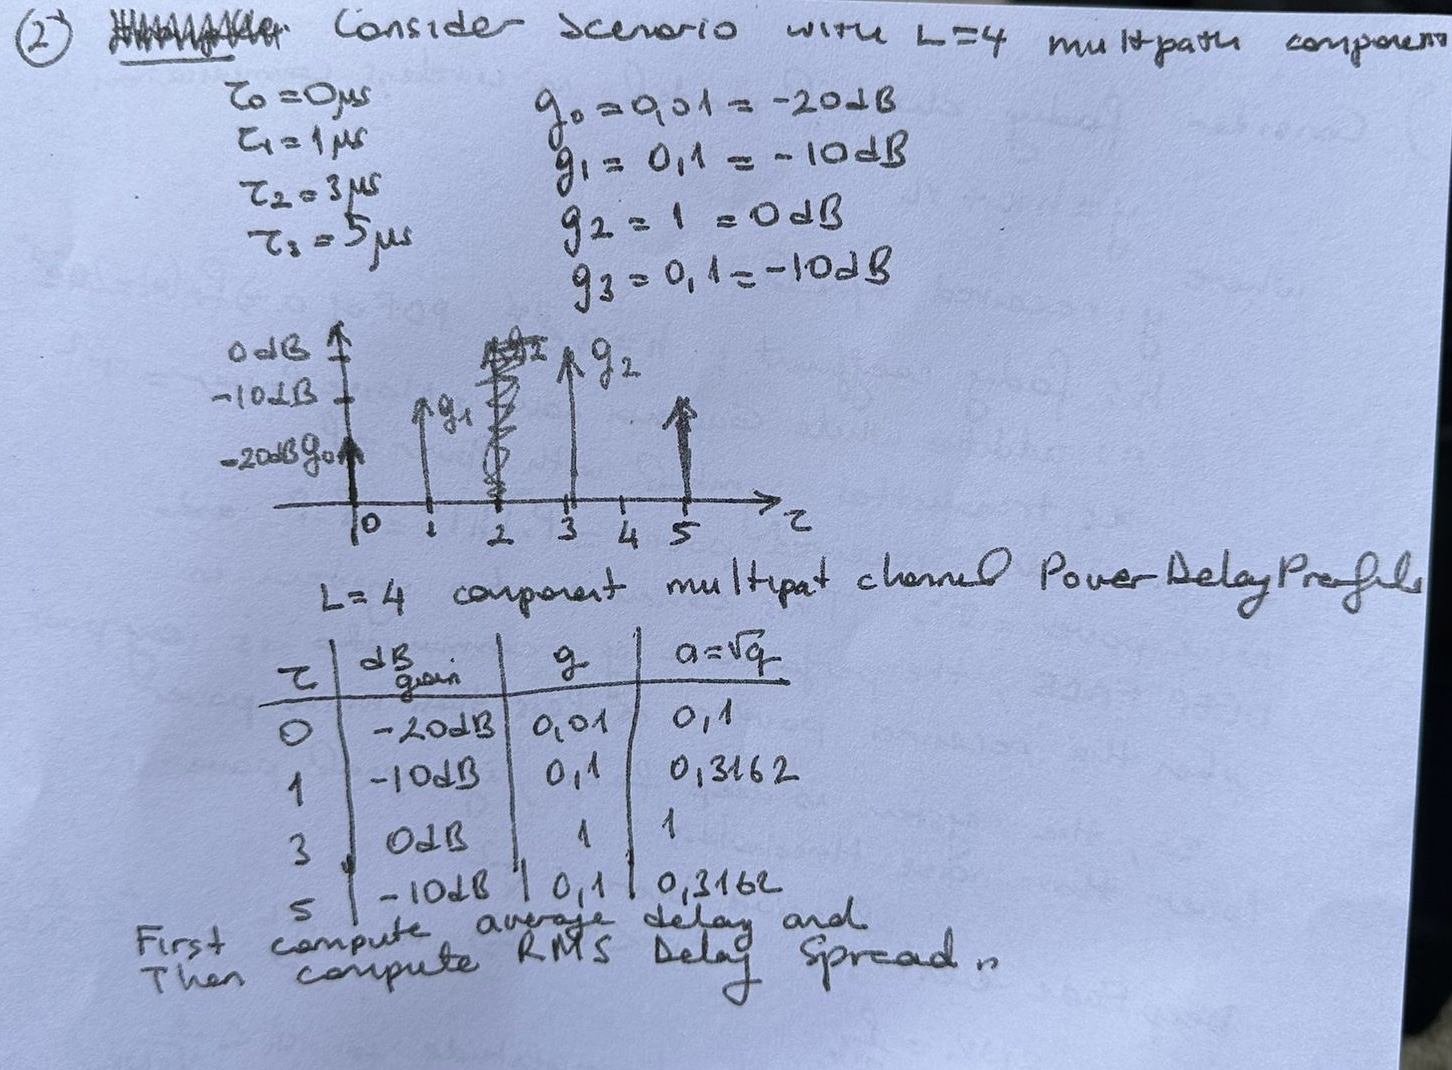 (2) Consider Scenario with L=4 multpath component
τ0 = 0μs g0 = 0,01 = -20dB
τ1 = 1μs g1 = 0,1 = -10dB
τ2 = 3μs g2 = 1 = 0dB
τ3 = 5μs g3 = 0,1 = -10dB
0dB g2
-10dB g1
-20dB g0
0 1 2 3 4 5 τ
L=4 component multipat channel Power Delay Profile
τ dB gain g a=√g
0 -20dB 0,01 0,1
1 -10dB 0,1 0,3162
3 0dB 1 1
5 -10dB 0,1 0,3162
First compute average delay and
Then compute RMS Delay Spread